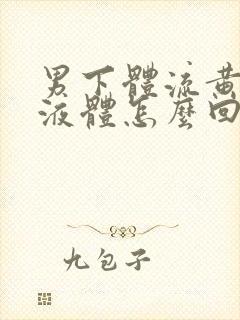 男下體流黃
液體怎麼回
九包子